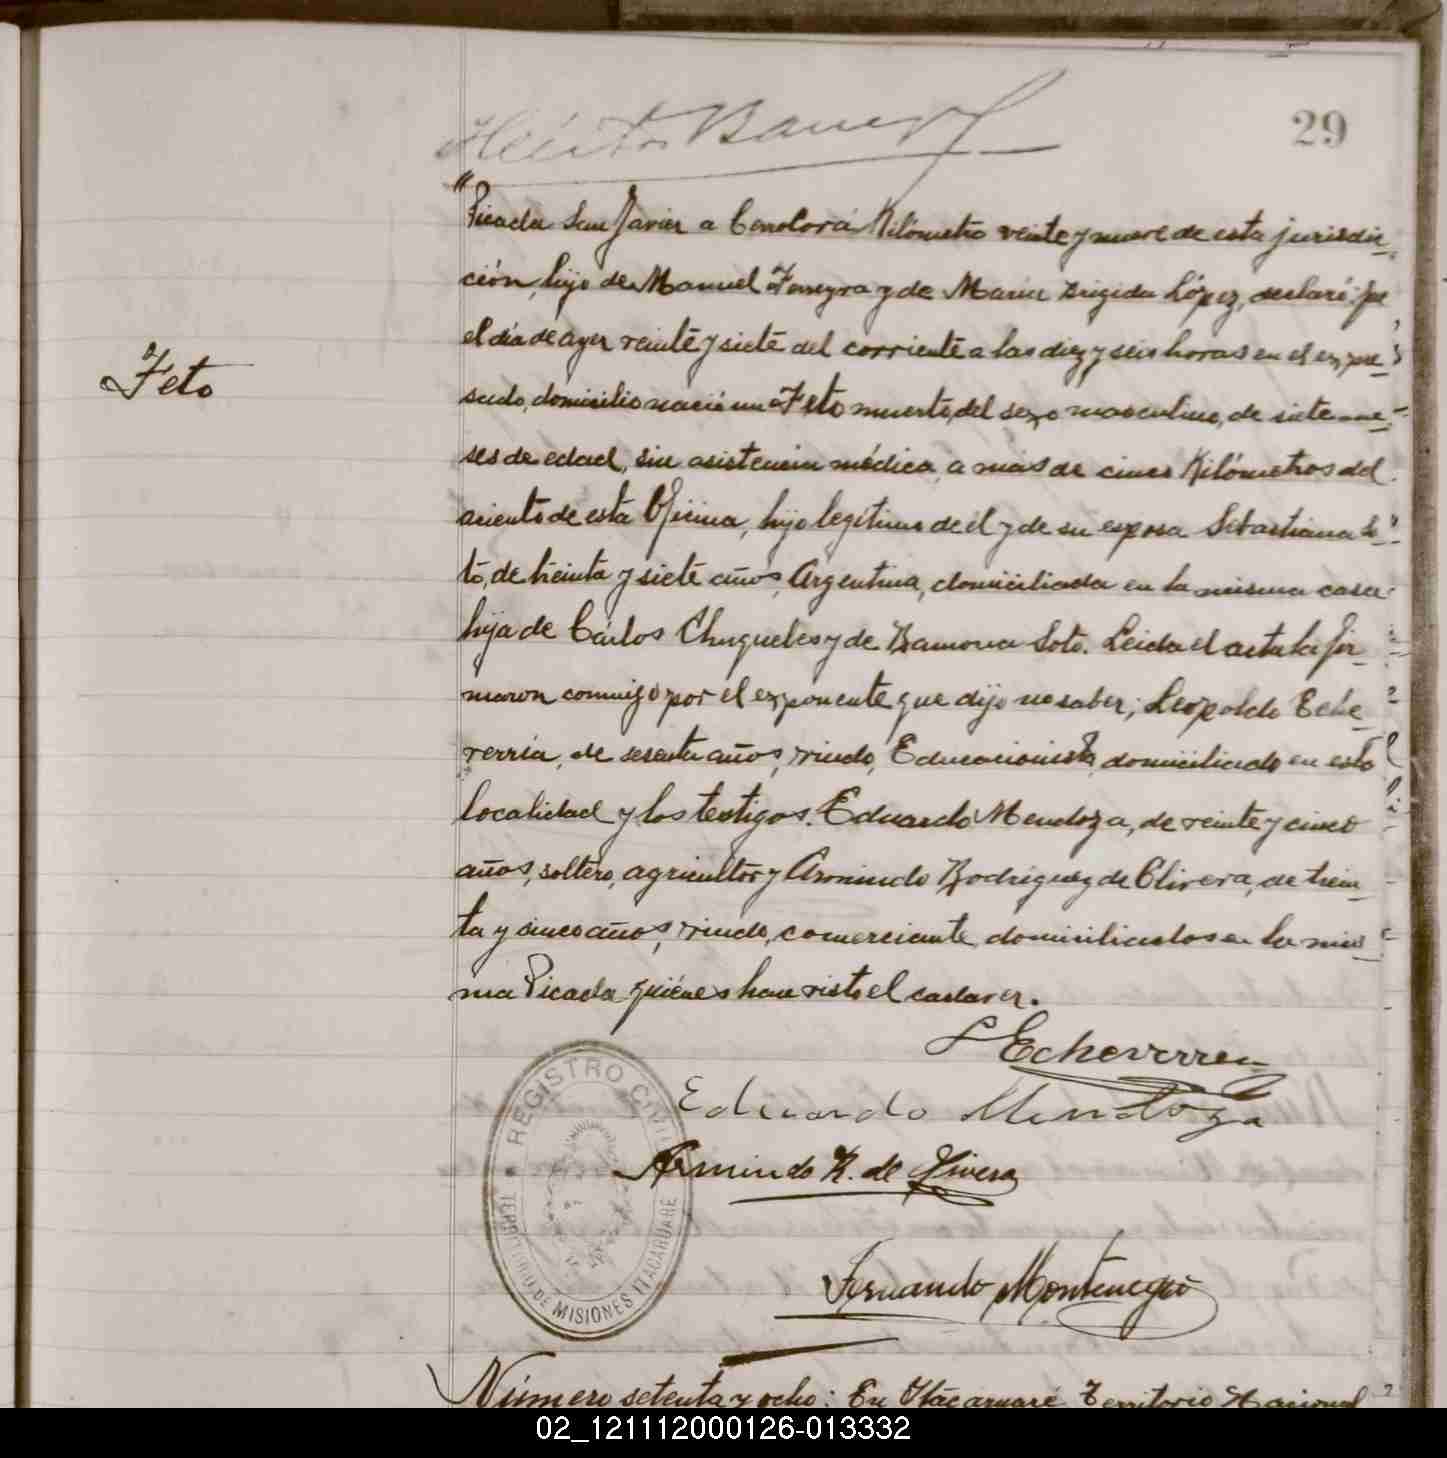 29
Héctor
Picada San Javier a Cerro Corá Kilómetro veinte y nueve de esta jurisdic-
ción, hijo de Manuel Ferreyra y de María Brigida López, declaró: que
el día de ayer veinte y siete del corriente a las diez y seis horas en el expre-
sado, domicilio nació un Feto muerto, del sexo masculino, de siete me-
Feto
ses de edad, sin asistencia médica, a más de cinco Kilómetros del
asiento de esta Oficina, hijo legítimo de él y de su esposa Sebastiana So-
to, de treinta y siete años, Argentina, domiciliada en la misma casa
hija de Cárlos Chuqueles y de Ramona Soto. Leida el acta la fir-
maron conmigo por el exponente que dijo no saber; Leopoldo Eche-
verria, de sesenta años, viudo, Educacionista, domiciliado en esta
localidad y los testigos. Eduardo Mendoza, de veinte y cinco
años, soltero, agricultor y Armindo Rodriguez de Olivera, de trein-
ta y cinco años, viudo, comerciante, domiciliados en la mis-
ma Picada quiénes han visto el cadaver.
L Echeverria
Eduardo Mendoza
Armindo R. de Olivera
Fernando Montenegro
REGISTRO CIVIL
TERRITORIO DE MISIONES ITACARUARE
Número setenta y ocho: En Itacaruaré Territorio Nacional
02_121112000126-013332